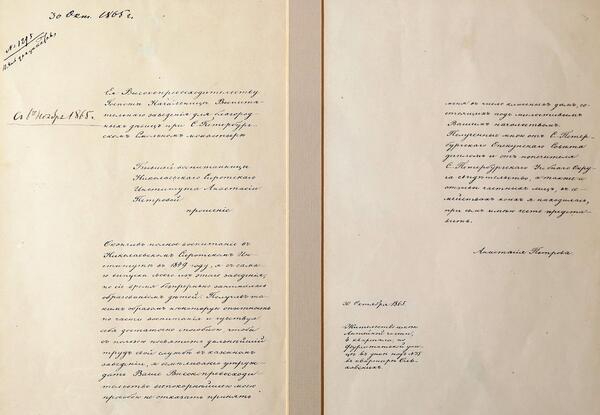 30 Окт. 1865 г.
№ 1293
Съ 1го Ноября 1865.
Ея Высокопревосходительству
Госпожѣ Начальницѣ Воспита-
тельнаго заведенія для благород-
ныхъ дѣвицъ при С. Петербург-
скомъ Смольномъ монастырѣ
Бывшей воспитанницы
Николаевскаго Сиротскаго
Института Анастасіи
Петровой
прошеніе
Окончивъ полное воспитаніе въ
Николаевскомъ Сиротскомъ Ин-
ститутѣ въ 1849 году, я съ сама-
го выпуска моего изъ этого заведенія,
по сіе время безпрерывно занималась
образованіемъ дѣтей. Получивъ та-
кимъ образомъ нѣкоторую опытность
по части воспитанія и чувствуя
себя достаточно способною, чтобы
съ пользою посвятить дальнѣйшій
трудъ свой службѣ въ казенномъ
заведеніи, я осмѣливаюсь утруж-
дать Ваше Высокопревосходи-
тельство всепокорнѣйшею моею
просьбою не отказать принять
меня въ число классныхъ дамъ, со-
стоящихъ подъ милостивымъ
Вашимъ начальствомъ.
Полученные мною отъ С. Петер-
бургскаго Опекунскаго Совѣта
дипломъ и отъ попечителя
С. Петербургскаго Учебнаго Окру-
га свидѣтельство, а также и
отзывы частныхъ лицъ, въ се-
мействахъ коихъ я находилась,
при семъ имѣю честь предста-
вить.
Анастасія Петрова
30 Октября 1865.
Жительство имѣю
Литейной части,
4 квартала, по
Фурштатской ули-
цѣ въ домѣ подъ №
въ квартирѣ